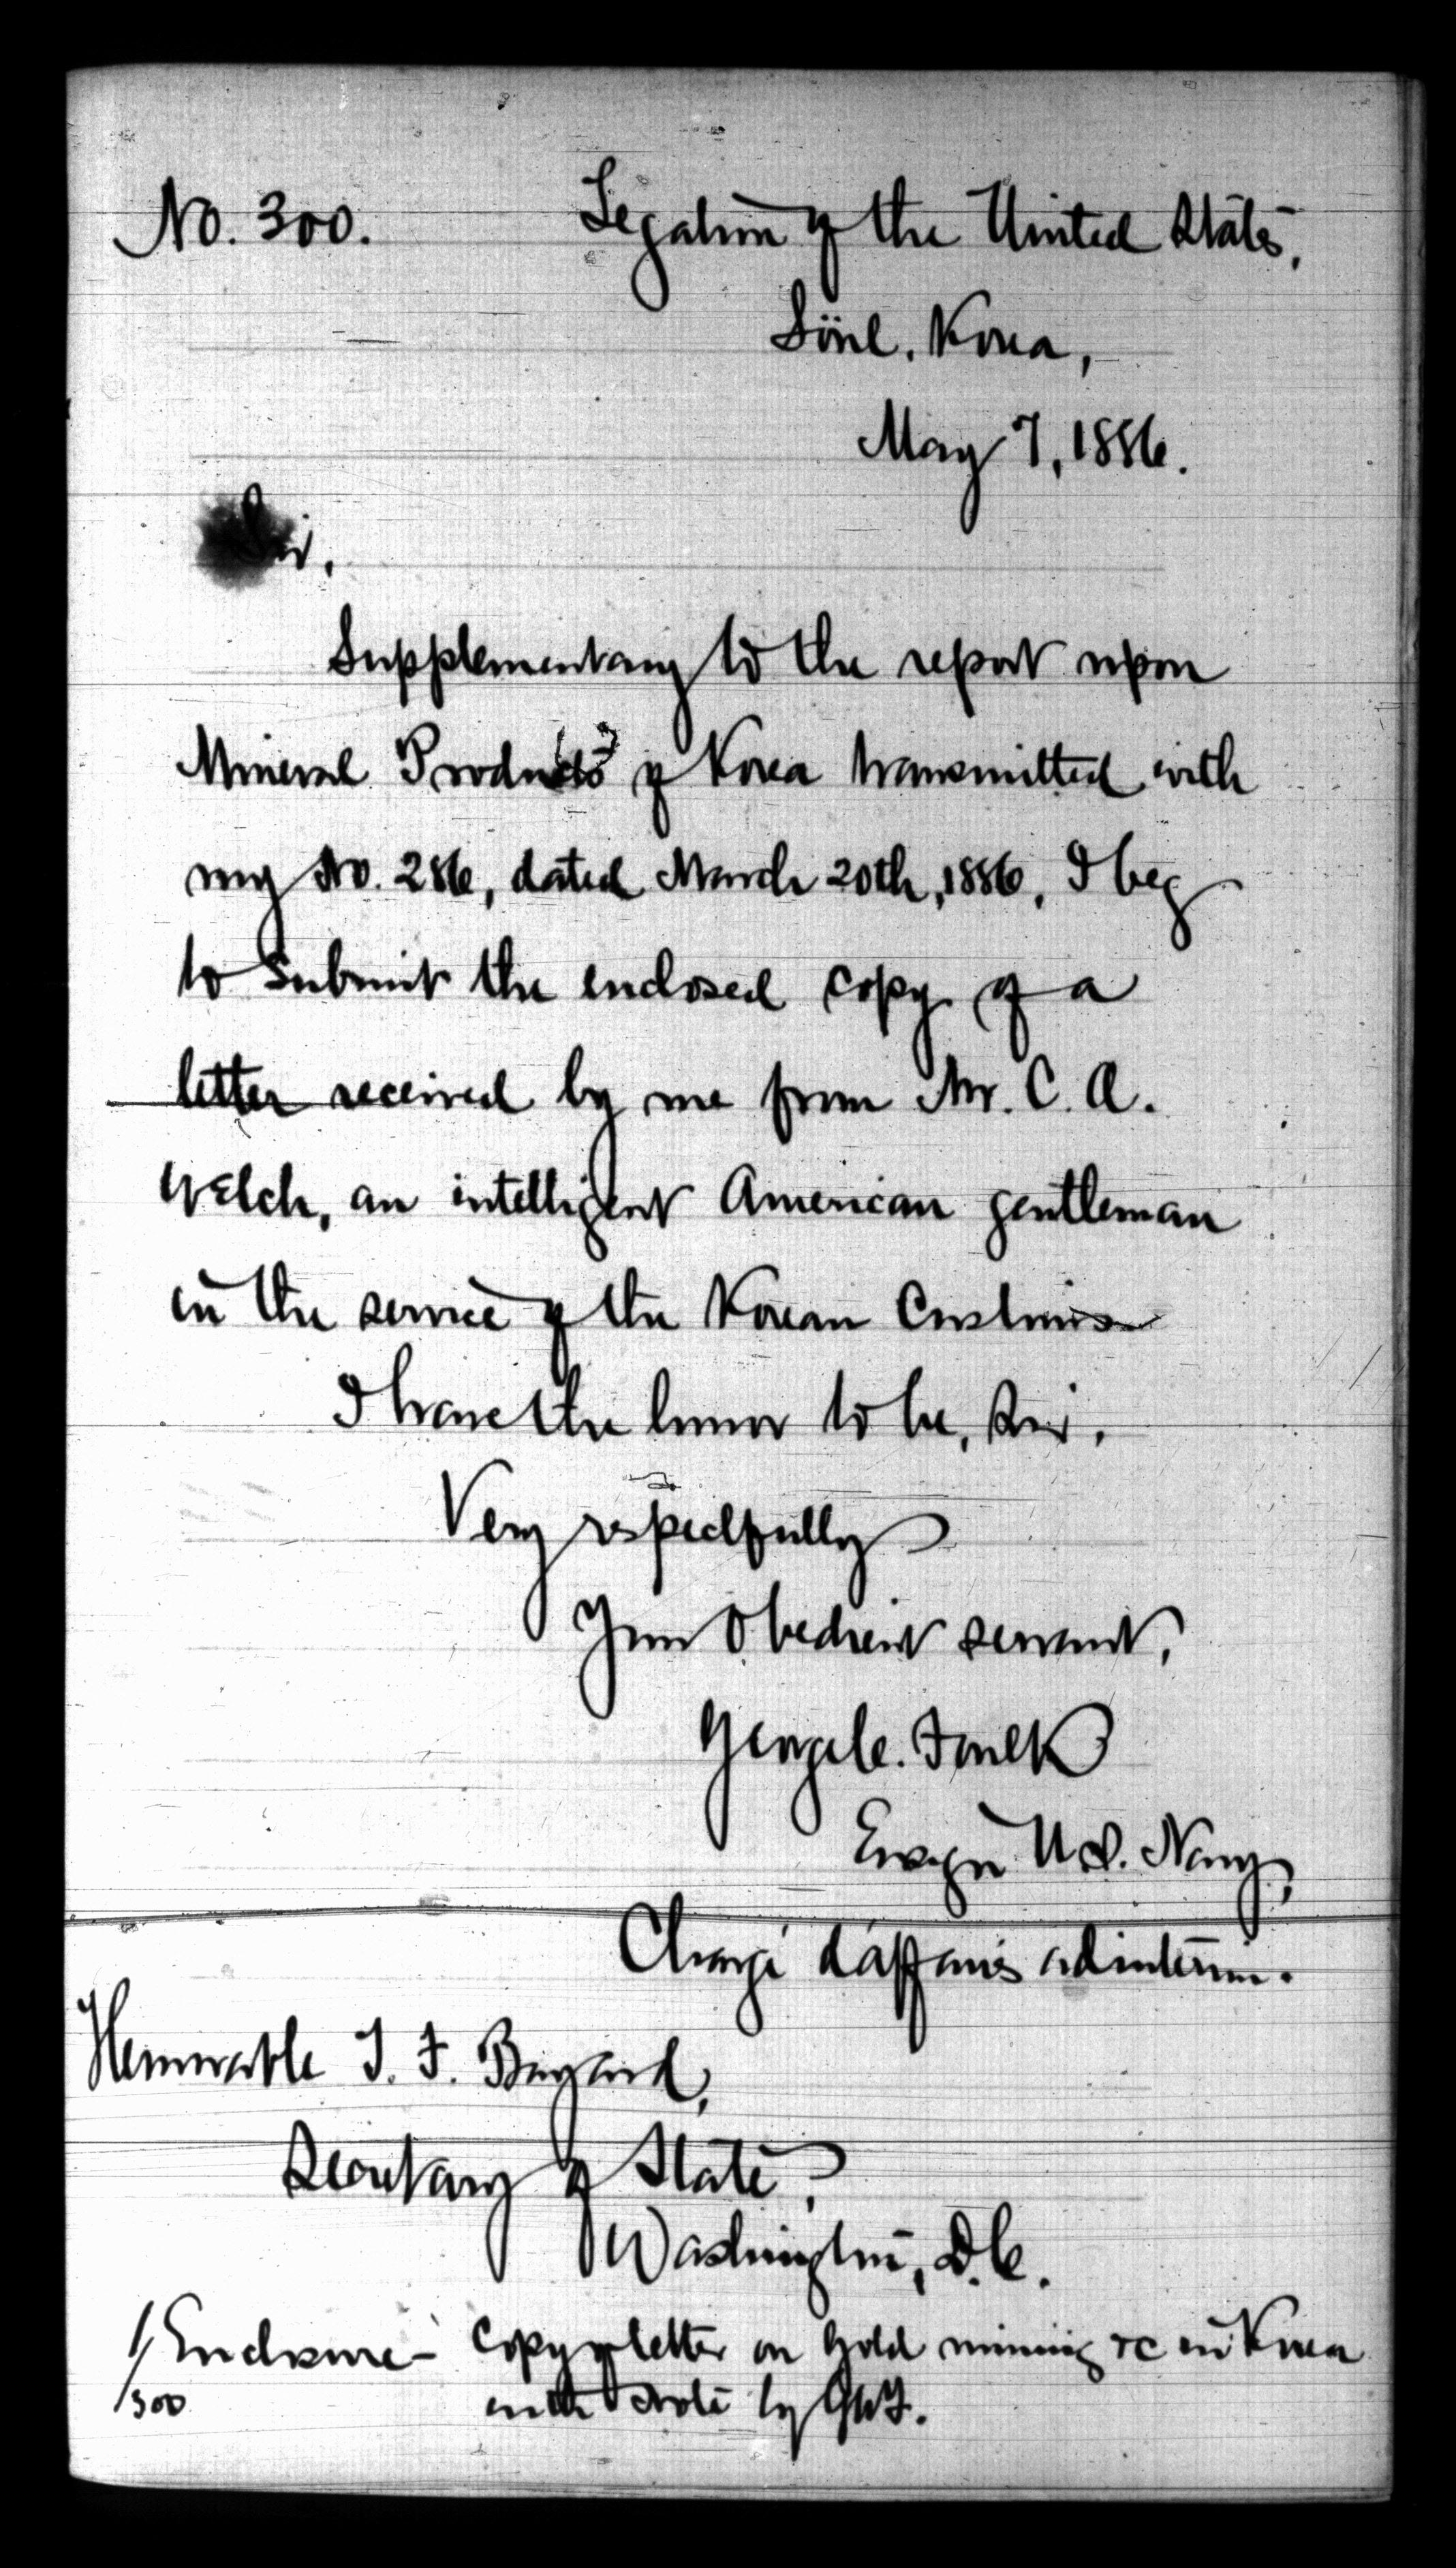 No. 300. Legation of the United States,
Söul, Korea,
May 7, 1886.
Sir,
Supplementary to the report upon
Mineral Products of Korea transmitted with
my No. 286, dated March 20th, 1886, I beg
to submit the enclosed copy of a
letter received by me from Mr. C. A.
Welch, an intelligent American gentleman
in the service of the Korean Customs
I have the honor to be, Sir,
Very respectfully
Your Obedient servant,
George C. Foulk
Ensign U.S. Navy,
Chargé d'affaires ad interim.
Honorable T. F. Bayard,
Secretary of State,
Washington, D.C.
1/300 Enclosure - Copy of letter on Gold mining &c in Korea
with Note by GCF.